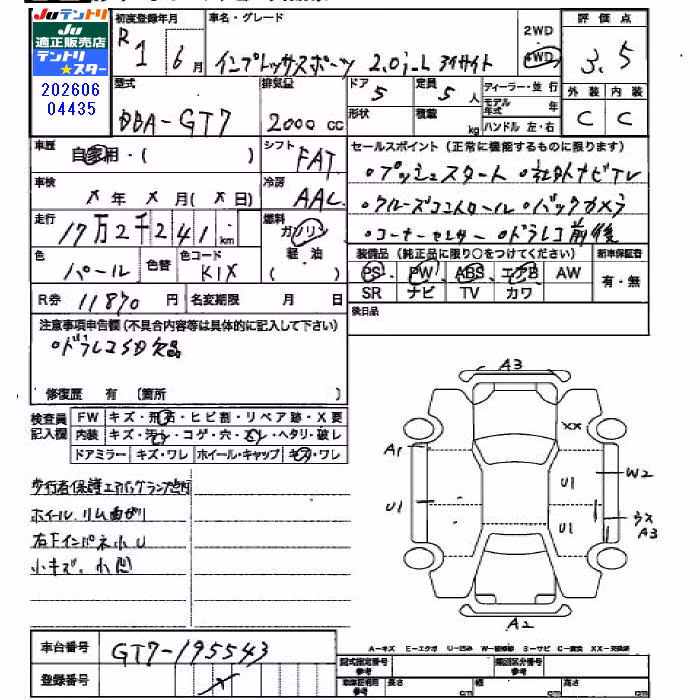 Juテントリ
Ju
適正販売店
テントリ
★スター
202606
04435
初度登録年月
R 1 6月
車名・グレード
インプレッサスポーツ 2.0i-L アイサイト
2WD
4WD
評価点
3.5
型式
DBA-GT7
排気量
2000 cc
ドア
5
定員
5人
形状
積載
kg
ディーラー・並行
モデル年式 年
ハンドル 左・右
外装 内装
C C
車歴
自家用・( )
シフト
FAT
車検
X年X月(X日)
冷房
AAC
走行
17万2千241km
燃料
ガソリン
軽油
( )
色
パール
色替
色コード
K1X
R券 11870円
名変期限 月 日
セールスポイント (正常に機能するものに限ります)
・プッシュスタート ・社外ナビTV
・クルーズコントロール ・バックカメラ
・コーナーセンサー ・ドラレコ前後
装備品 (純正品に限り○をつけてください)
新車保証書
PS PW ABS エアB AW
SR ナビ TV カワ
有・無
後日品
注意事項申告欄 (不具合内容等は具体的に記入して下さい)
・ドラレコSD欠品
修復歴 有 〔箇所 〕
検査員
記入欄
FW キズ・飛石・ヒビ割・リペア跡・X要
内装 キズ・汚レ・コゲ・穴・スレ・ヘタリ・破レ
ドアミラー キズ・ワレ ホイール・キャップ キズ・ワレ
歩行者保護エアバッグランプ点灯
ホイールリム曲がり
右Fインパネ小U
小キズ、小凹
A3
XX
A1
W2
U1
U1
U1
ウス
A3
A2
車台番号
GT7-195543
登録番号
A-キズ E-エクボ U-凹み W-補修跡 S-サビ C-腐食 XX-交換済
型式指定番号
参考
類別区分番号
参考
車庫証明用
参考
長さ cm
幅 cm
高さ cm